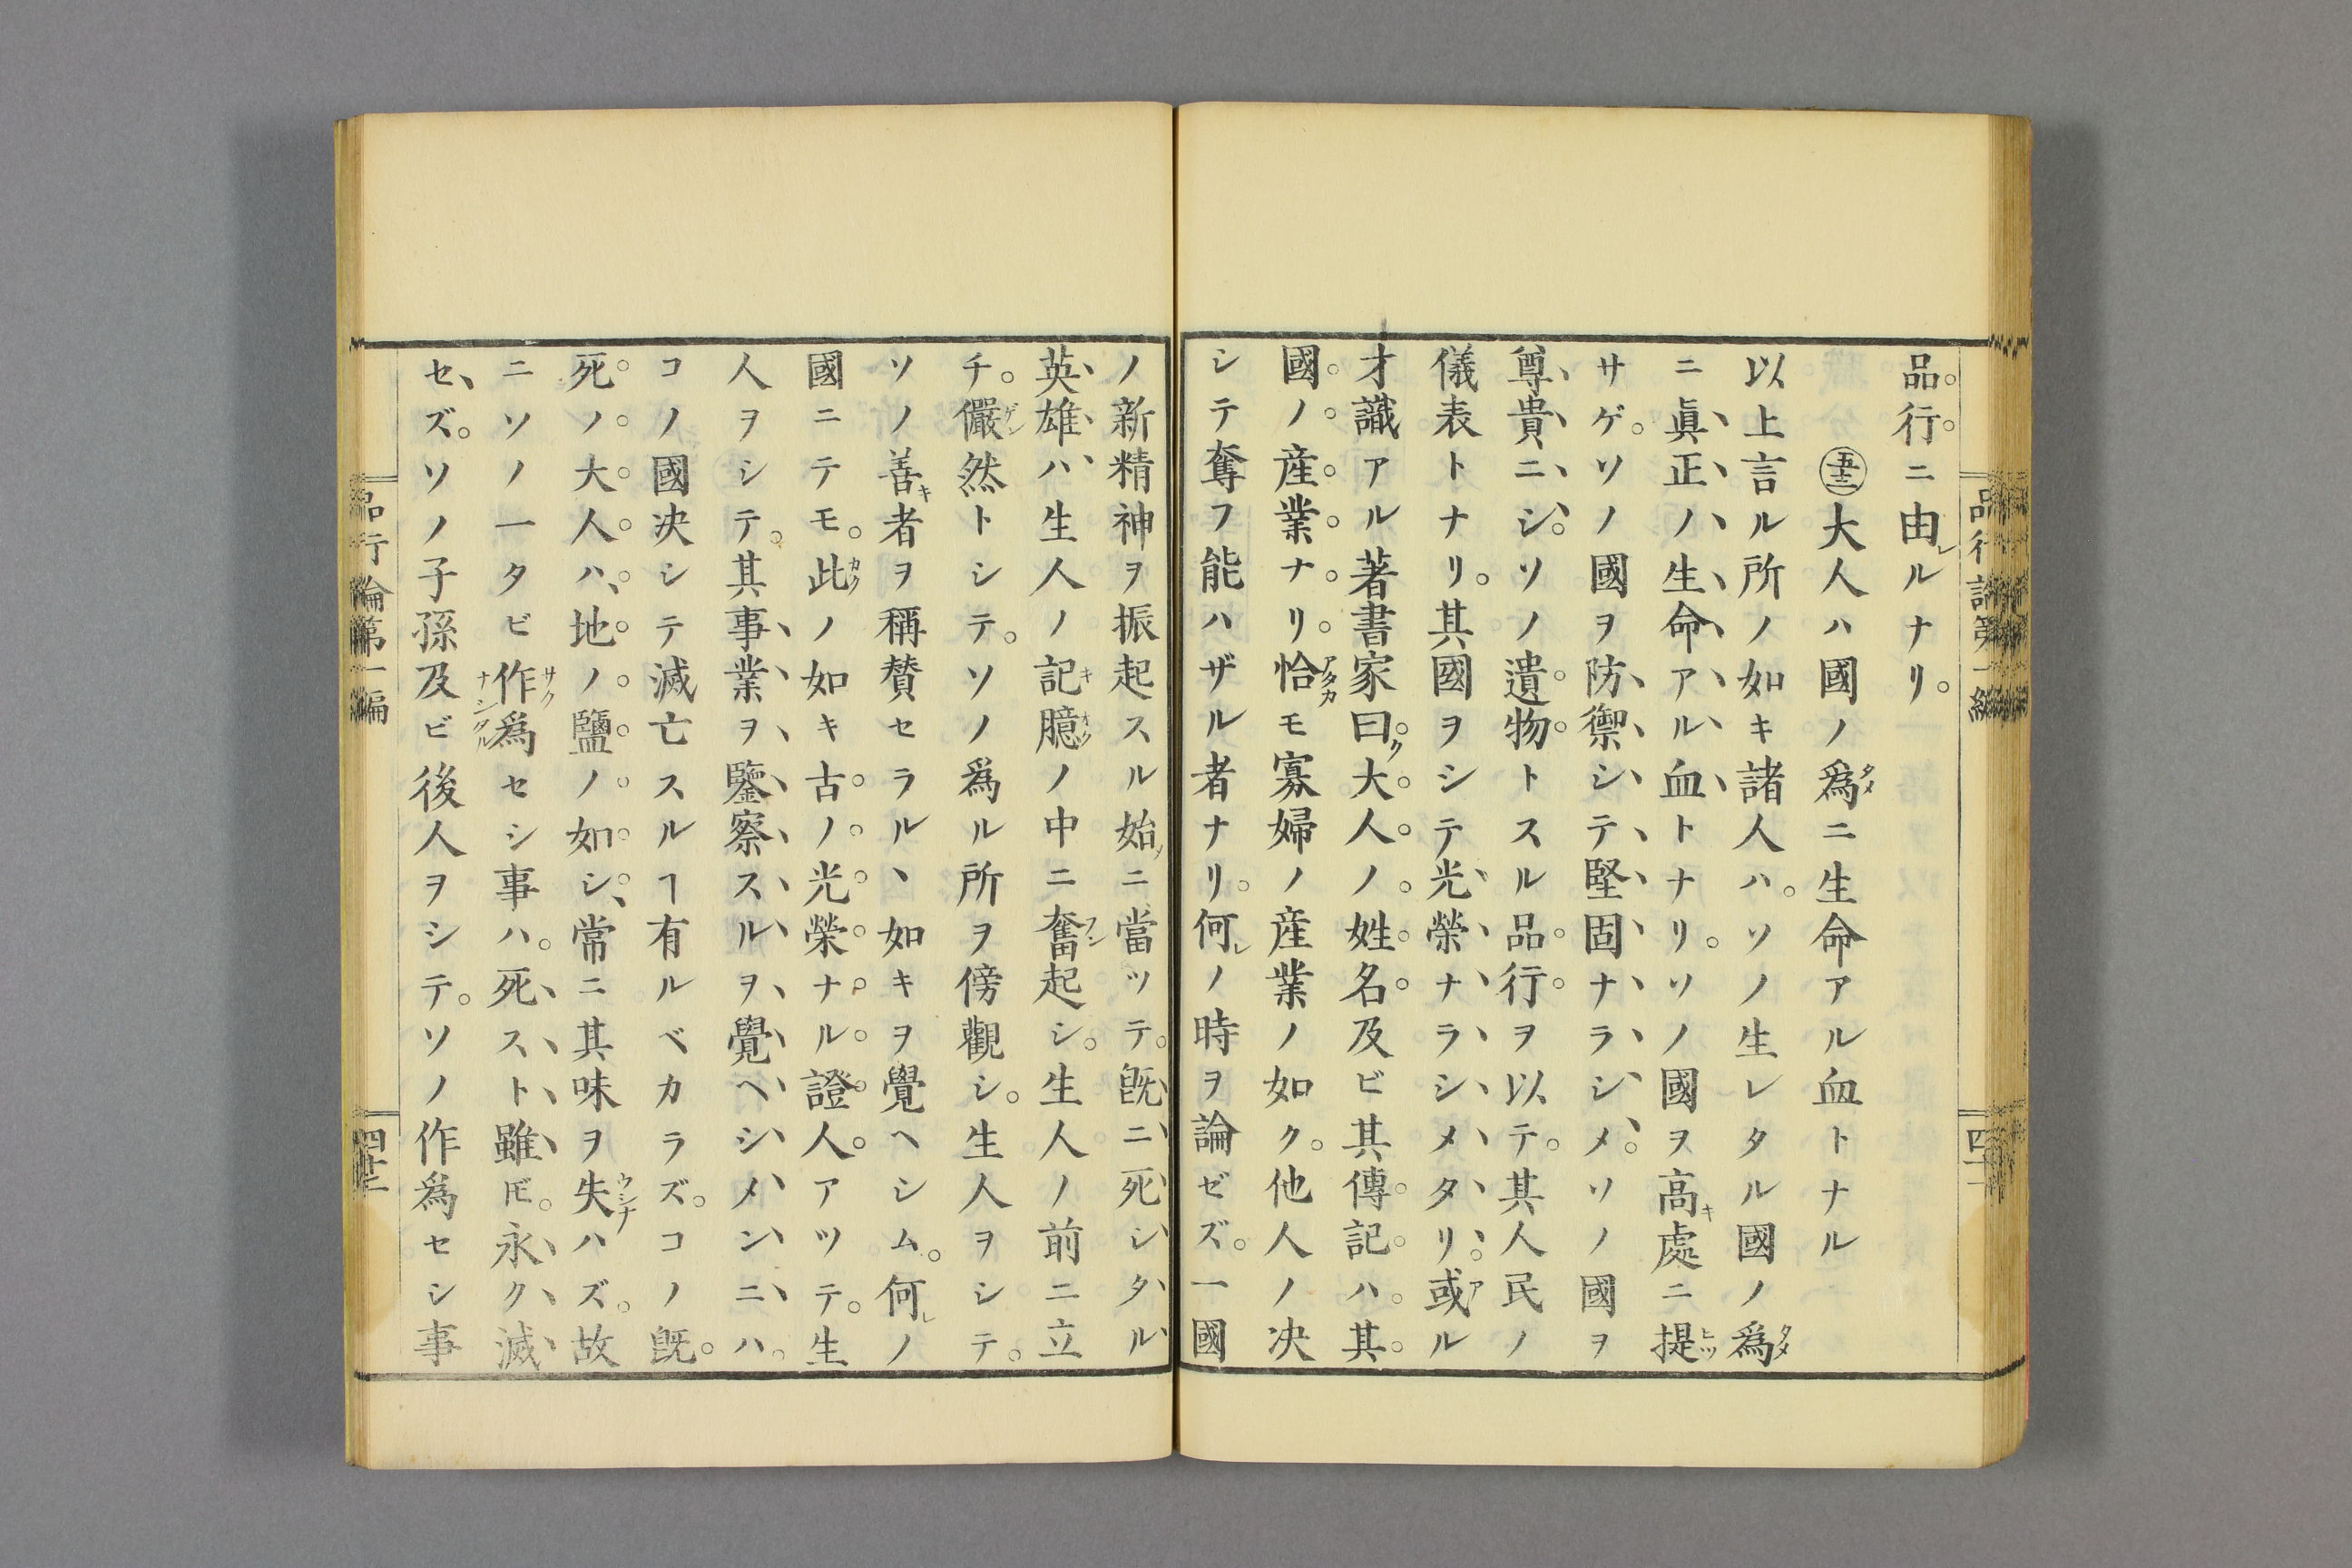 品行ニ由レルナリ。
五十三 大人ハ國ノ爲タメニ生命アル血トナル
以上言ル所ノ如キ諸人ハ。ソノ生レタル國ノ爲タメ
ニ眞正ノ生命アル血トナリ。ソノ國ヲ高キ處ニ提ヒツ
サゲ。ソノ國ヲ防禦シテ堅固ナラシメ。ソノ國ヲ
尊貴ニシ。ソノ遺物トスル品行ヲ以テ。其人民ノ
儀表トナリ。其國ヲシテ光榮ナラシメタリ。或アル
才識アル著書家曰ク。大人ノ姓名及ビ其傳記ハ。其
國ノ産業ナリ。恰アタカモ寡婦ノ産業ノ如ク。他人ノ决
シテ奪フ能ハザル者ナリ。何レノ時ヲ論ゼズ。一國
ノ新精神ヲ振起スル始ノニ當ッテ。既ニ死シタル
英雄ハ生人ノ記キ臆オクノ中ニ奮フン起シ。生人ノ前ニ立
チ。儼ゲン然トシテ。ソノ爲ル所ヲ傍觀シ。生人ヲシテ。
ソノ善キ者ヲ稱賛セラルヽ如キヲ覺ヘシム。何レノ
國ニテモ。此カクノ如キ古ノ光榮ナル證人アッテ。生
人ヲシテ。其事業ヲ鑒察スルヲ覺ヘシメンニハ。
コノ國决シテ滅亡スルヿ有ルベカラズ。コノ既。
死ノ大人ハ、地ノ鹽ノ如シ、常ニ其味ヲ失ウシナハズ。故
ニソノ一タビ作サク爲ナシタルセシ事ハ。死スト雖𪜈。永ク滅
セズ。ソノ子孫及ビ後人ヲシテ。ソノ作爲セシ事
品行論第一編
四十二